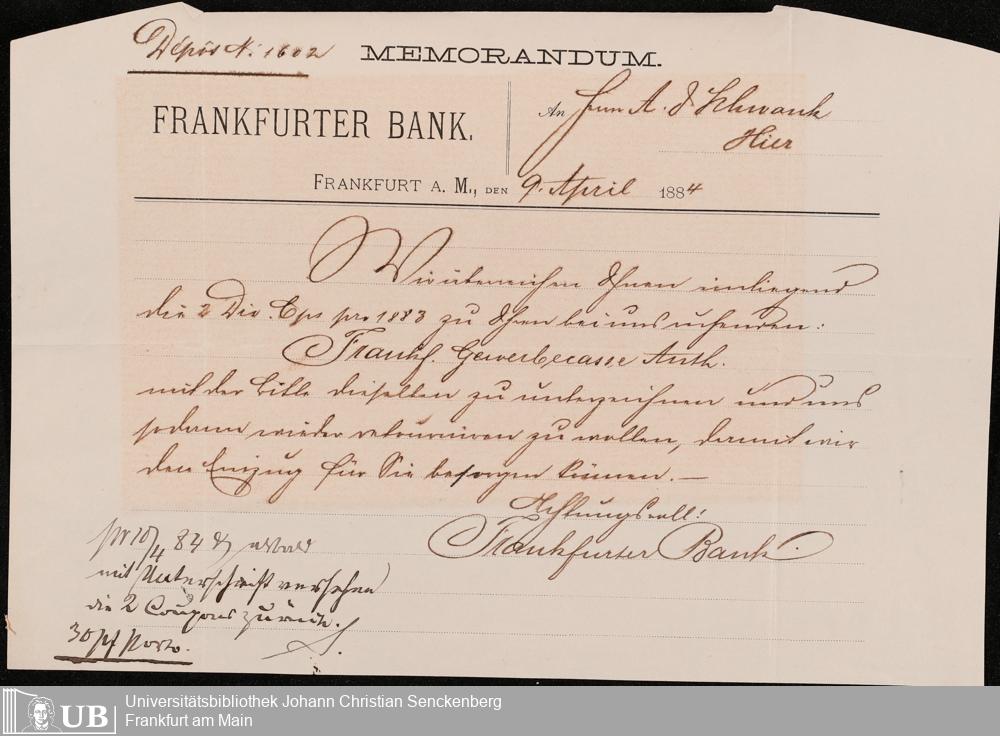 Dépôs N: 1602
MEMORANDUM.
FRANKFURTER BANK.
An Herrn A. J. Schwank
Hier
FRANKFURT A. M., DEN 9. April 1884
Wir überreichen Ihnen einliegend
die 2 Div. Cps pro 1883 zu Ihren bei uns ruhenden:
Frankf. Gewerbecasse Anth.
mit der Bitte dieselben zu unterzeichnen und uns
sodann wieder retourniren zu wollen, damit wir
den Einzug für Sie besorgen können. —
Achtungsvoll:
Frankfurter Bank.
pr 10/4 84
mit Unterschrift versehen
die 2 Coupons zurück.
30 pf Porto.
UB
Universitätsbibliothek Johann Christian Senckenberg
Frankfurt am Main